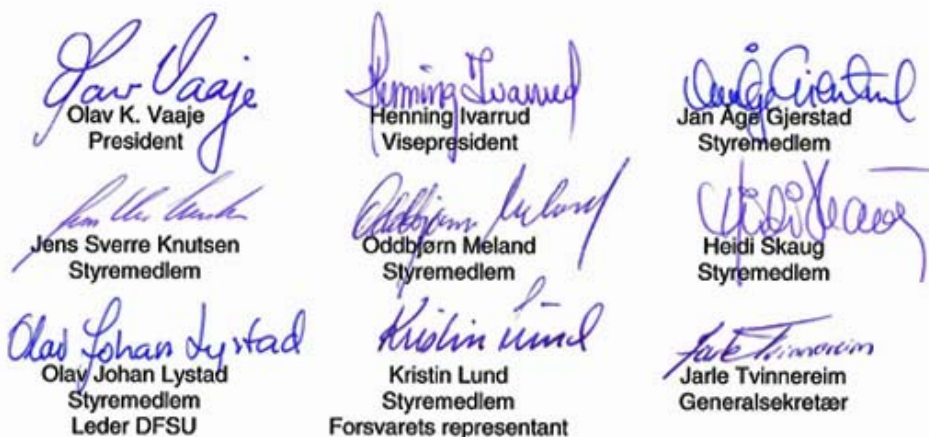 Olav Vaaje
Olav K. Vaaje
President
Henning Ivarrud
Henning Ivarrud
Visepresident
Jan Åge Gjerstad
Styremedlem
Jens Sverre Knutsen
Styremedlem
Oddbjørn Meland
Oddbjørn Meland
Styremedlem
Heidi Skaug
Heidi Skaug
Styremedlem
Olav Johan Lystad
Olav Johan Lystad
Styremedlem
Leder DFSU
Kristin Lund
Kristin Lund
Styremedlem
Forsvarets representant
Jarle Tvinnereim
Jarle Tvinnereim
Generalsekretær